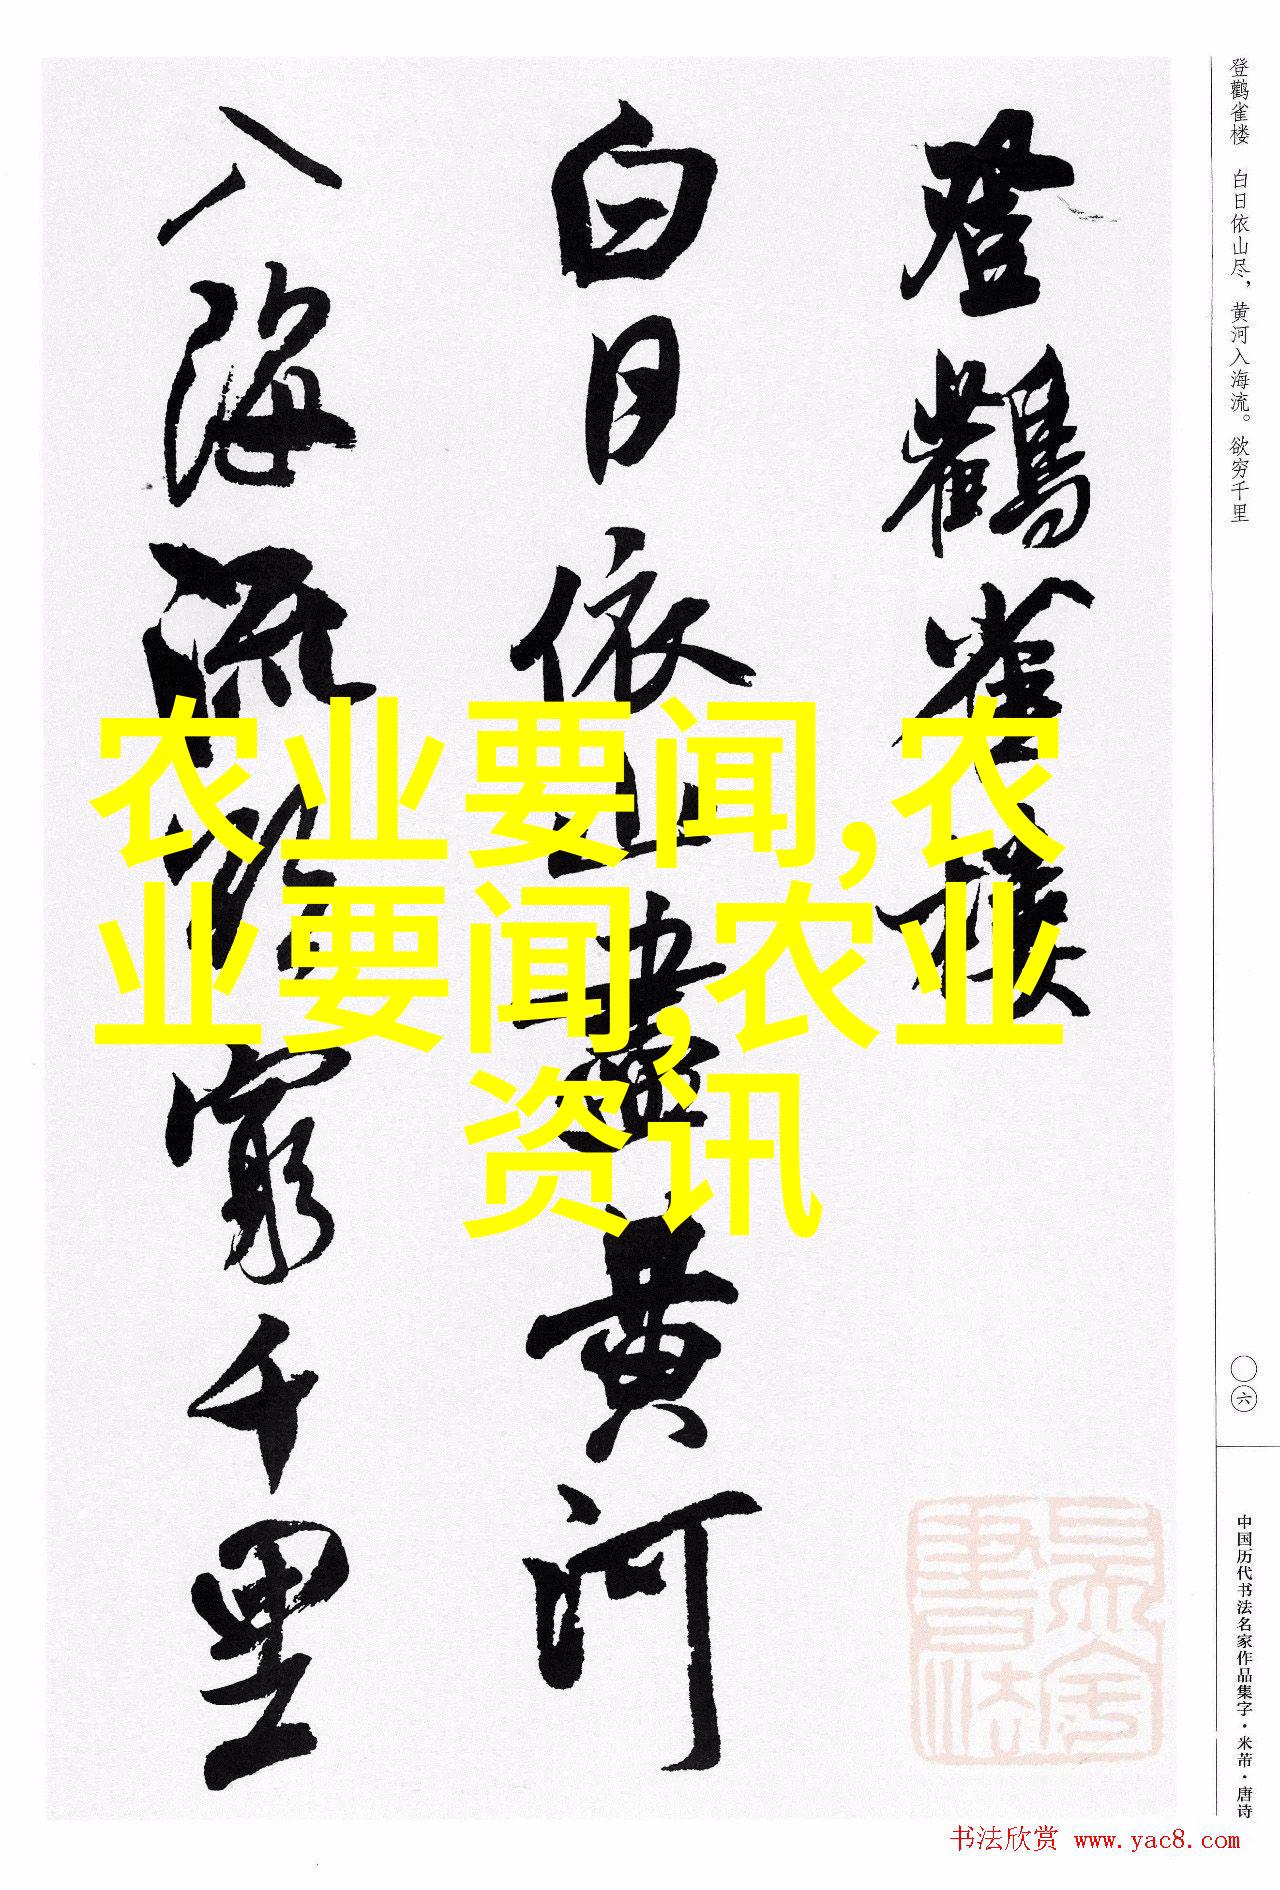 登鸛雀樓
白日依山盡黄河
入海流欲窮千里
登鹳雀楼 白日依山尽，黄河入海流。欲穷千里
〇六
中国历代书法名家作品集字·米芾·唐诗
农业要闻,农
业要闻,农业
资讯
书法欣赏 www.yac8.com